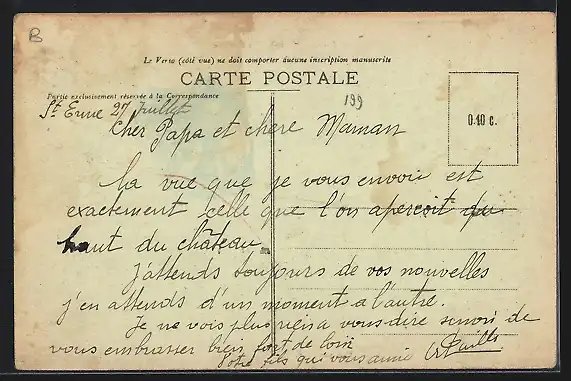 B
Le Verso (côté vue) ne doit comporter aucune inscription manuscrite
CARTE POSTALE
Partie exclusivement réservée à la Correspondance
199
0.10 c.
St Enne 27 Juillet
Cher Papa et chere Maman
la vue que je vous envoie est
exactement celle que l'on aperçoit du
haut du château
J'attends toujours de vos nouvelles
j'en attends d'un moment a l'autre.
Je ne vois plus rien a vous dire sinon de
vous embrasser bien fort de loin
Votre fils qui vous aime